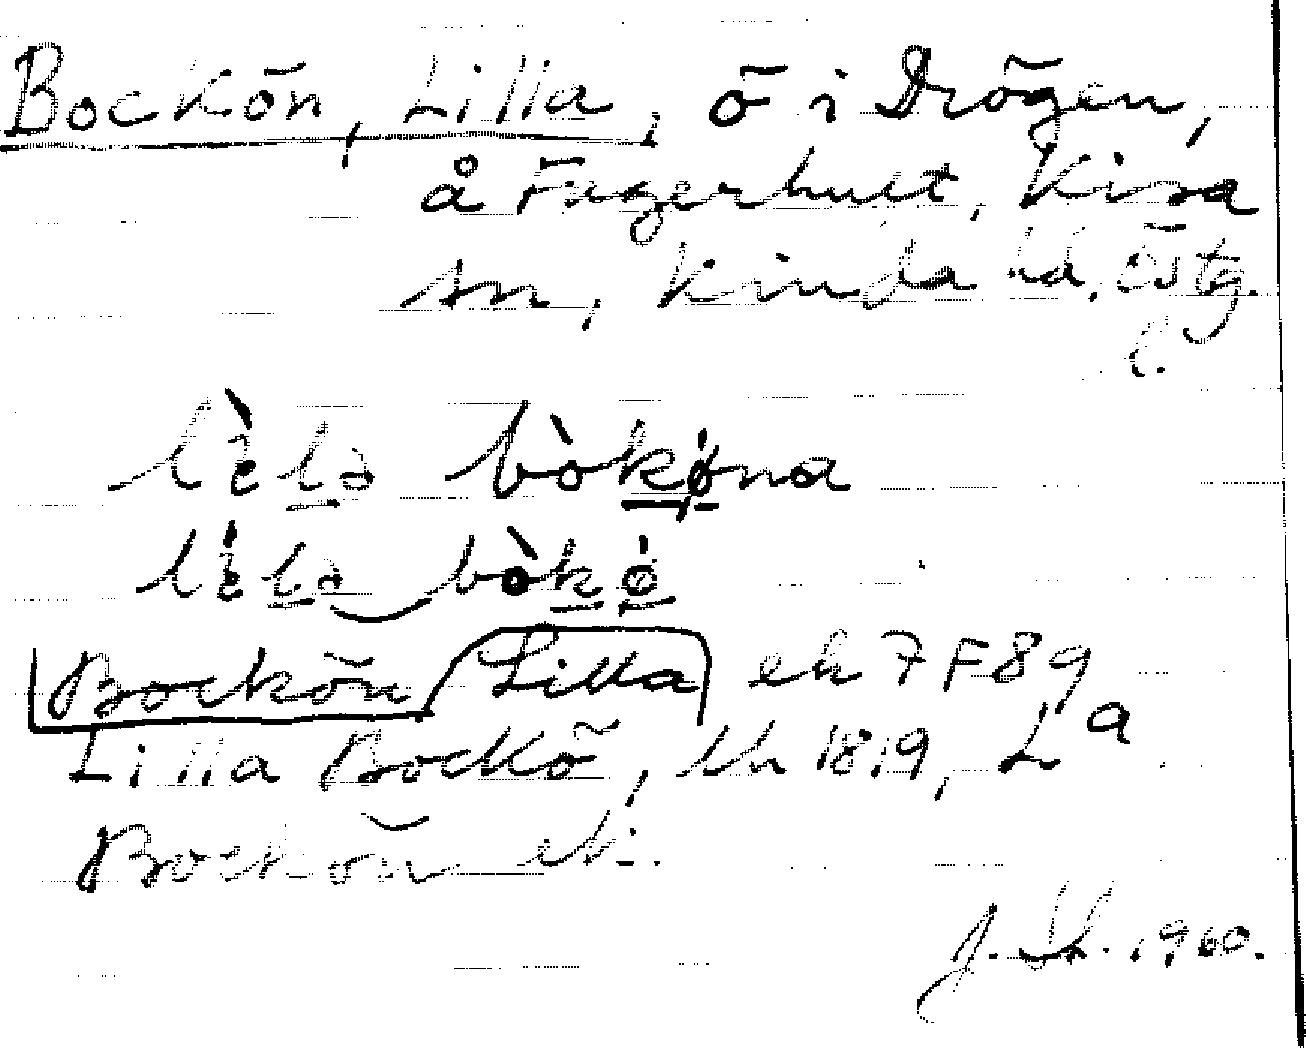 Bockön, Lilla, ö i Drögen,
å Fagerhult, Kisa
sn, Kinda hd, Östg.
l.
lèlə bòkøna
lèlə bòkø
Bockön Lilla ek 7 F 8 g
Lilla Bockö, lh 1819, La
Bockön ek.
1960.